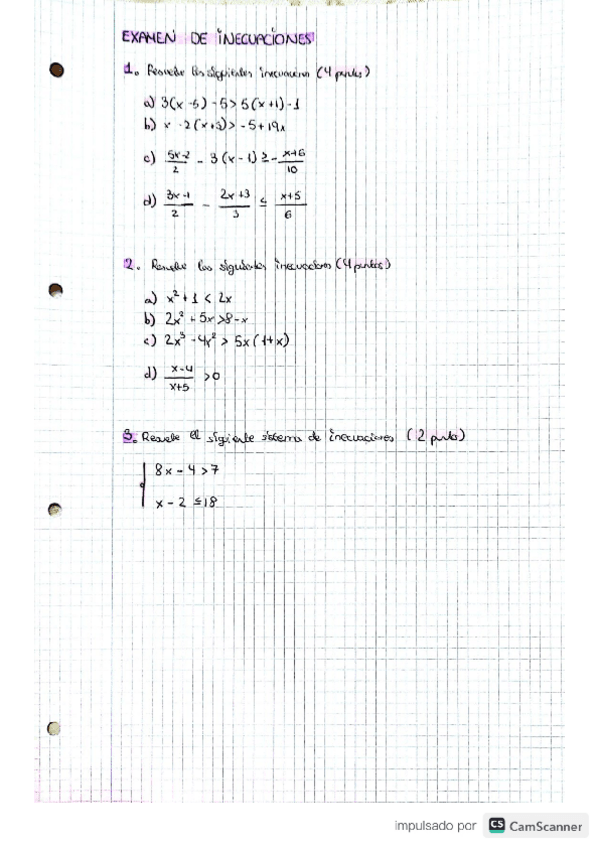 EXAMEN DE INECUACIONES
1. Resuelve las siguientes inecuaciones (4 puntos)
a) 3(x-5)-5>5(x+1)-1
b) x-2(x+3)>-5+19x
c) 5x-2/2 - 3(x-1) ≥ - x+6/10
d) 3x-1/2 - 2x+3/3 ≤ x+5/6
2. Resuelve las siguientes inecuaciones (4 puntos)
a) x²+1<2x
b) 2x²+5x>8-x
c) 2x³-4x²>5x(1+x)
d) x-4/x+5 >0
3. Resuelve el siguiente sistema de inecuaciones (2 puntos)
8x-4>7
x-2≤18
impulsado por CS CamScanner